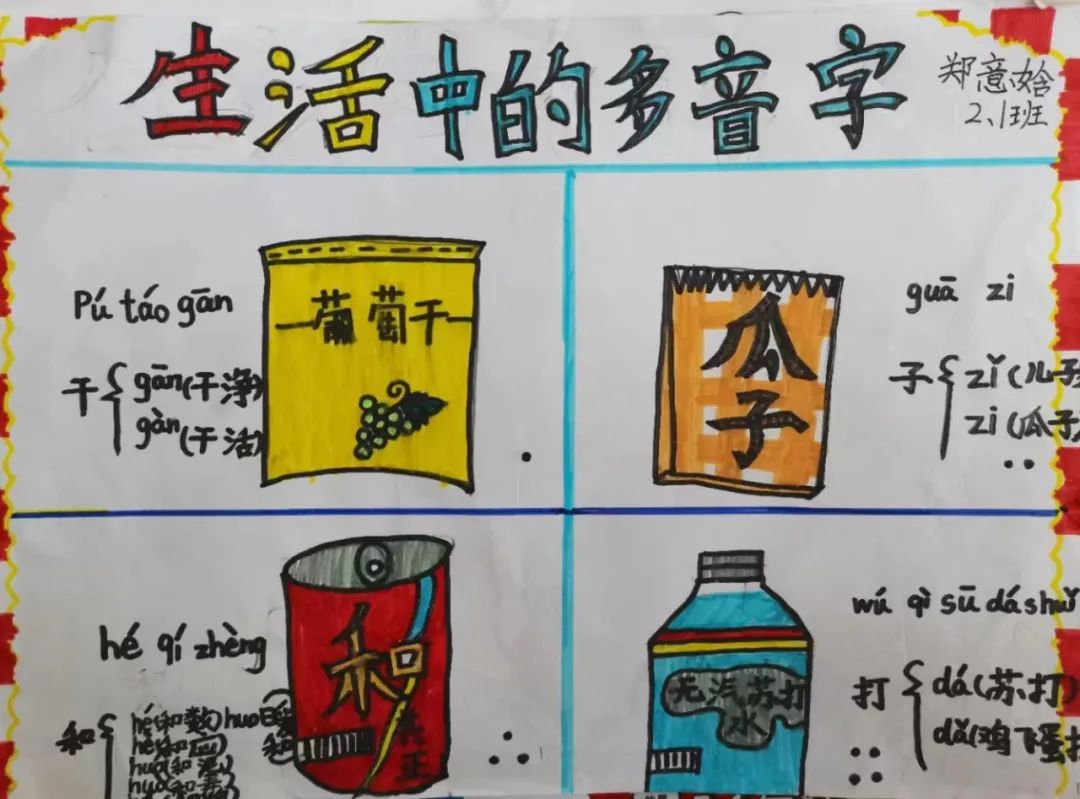 生活中的多音字
郑意晗
2、1班
Pú táo gān
葡萄干
干
gān(干净)
gàn(干活)
guā zi
瓜子
子
zǐ(儿子
zi(瓜子)
hé qí zhèng
和
其正
和
hé(和数)
huo(暖和
hè(和应)
wú qì sū dá shuǐ
无汽苏打
水
打
dá(苏打)
dǎ(鸡飞蛋打